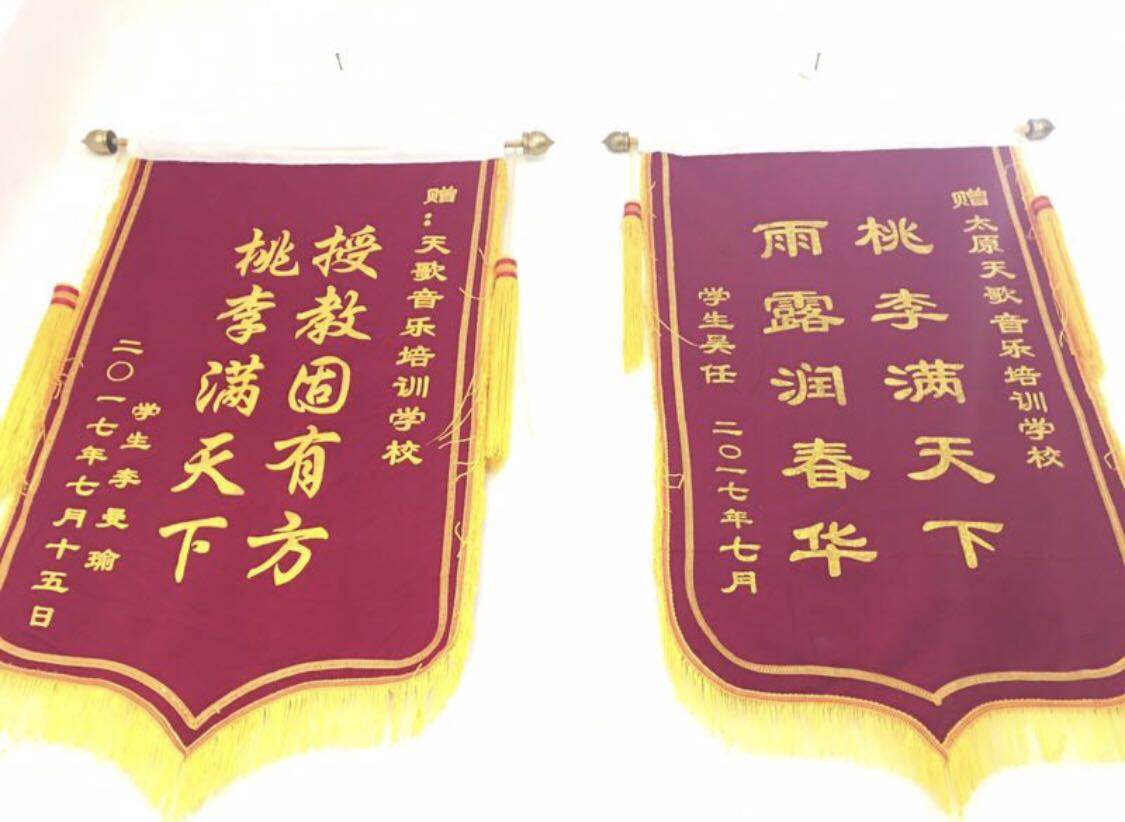 赠：天歌音乐培训学校
授教固有方
桃李满天下
学生李曼瑜
二〇一七年七月十五日
赠太原天歌音乐培训学校
桃李满天下
雨露润春华
学生吴任 二〇一七年七月